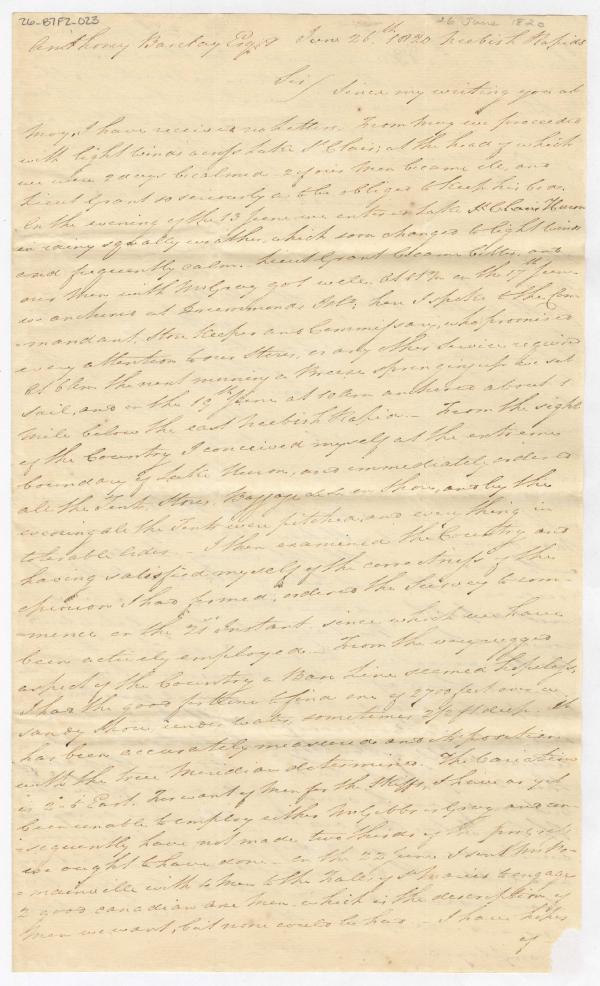 26-B7F2-023
26 June 1820
Anthony Barclay Esqr June 26th 1820 Neebish Rapids
Sir/ Since my writing you at
Moy, I have received no letters. From Moy we proceeded
with light winds across Lake St Clair, at the head of which
we were 2 days becalmed 2 of our men became ill, and
Lieut Grant so seriously as to be obliged to keep his bed.
On the evening of the 13 June we entered Lake Huron
in rainy squally weather, which soon changed to light winds
and frequently calm. Lieut Grant became better, and
our men with Mr Gray got well. At 11 on the 17th June
we anchored at Drummonds Isld; here I spoke to the Com
-mandant, Store Keeper and Commissary, who promised
every attention to our Stores, or any other service required
At 6 Am the next morning a Breeze springing up we set
sail, and on the 19th June at 10 am anchored about 1
mile below the east Neebish Rapid. - From the sight
of the Country I conceived myself at the extreme
boundary of Lake Huron, and immediately ordered
all the Tents, Stores, Baggage &c &c on Shore, and by the
evening all the Tents were pitched, and every thing in
tolerable order. - I then examined the Country, and
having satisfied myself of the correctness of the
opinion I had formed, ordered the Survey to com-
-mence on the 21st Instant since which we have
been actively employed. - From the very rugged
aspect of the Country a Base Line seemed hopeless,
I had the good fortune to find one of 2700 feet over a
sandy Shore, under water, sometimes 2 ft deep. It
has been accurately measured and its position
with the true Meridian determined. The Variation
is East. For want of Men for the Skiffs, I have as yet
been unable to employ either Mr Gibbs or Gray, and con
-sequently have not made two thirds of the progress
we ought to have done - On the 22 June I sent Mr
-mainville with men to the Falls of St Maries to engage
2 good canadian axe men, which is the description of
men we want, but none could be had. - I have hopes
of